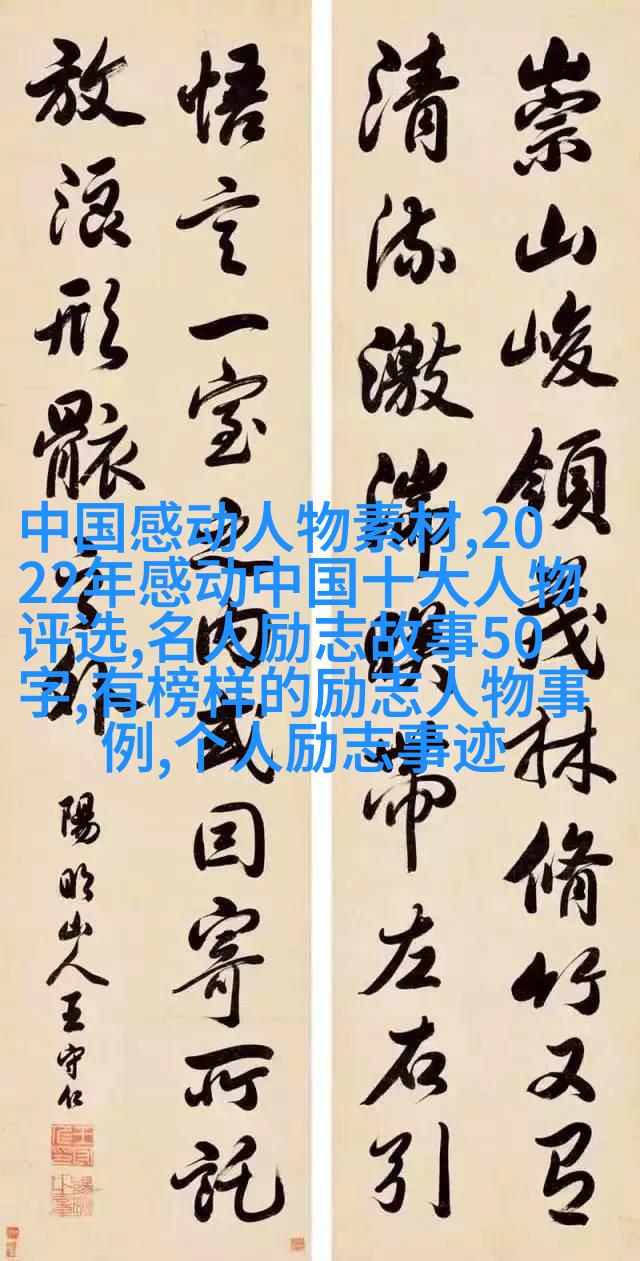 崇山峻領茂林脩竹又有
清流激湍暎帶左右引
悟言一室之内或因寄所託
放浪形骸之外
陽明山人王守仁
中国感动人物素材,20
22年感动中国十大人物
评选,名人励志故事50
字,有榜样的励志人物事
例,个人励志事迹